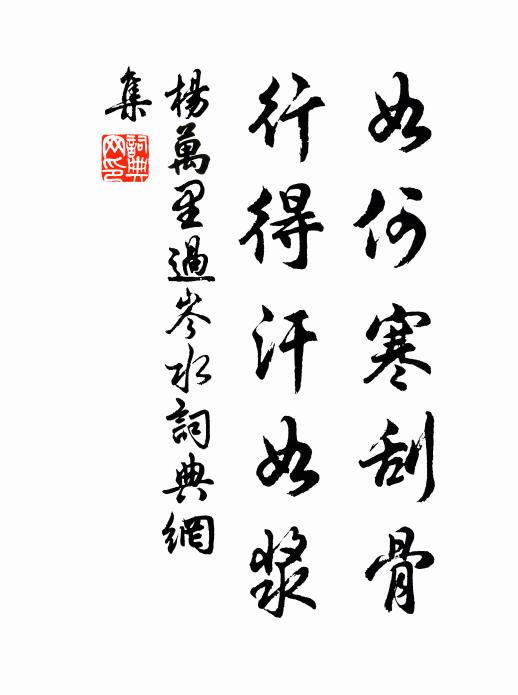 如何寒刮骨
行得汗如漿
楊萬里過岑水詞典網
集
詞典
网印